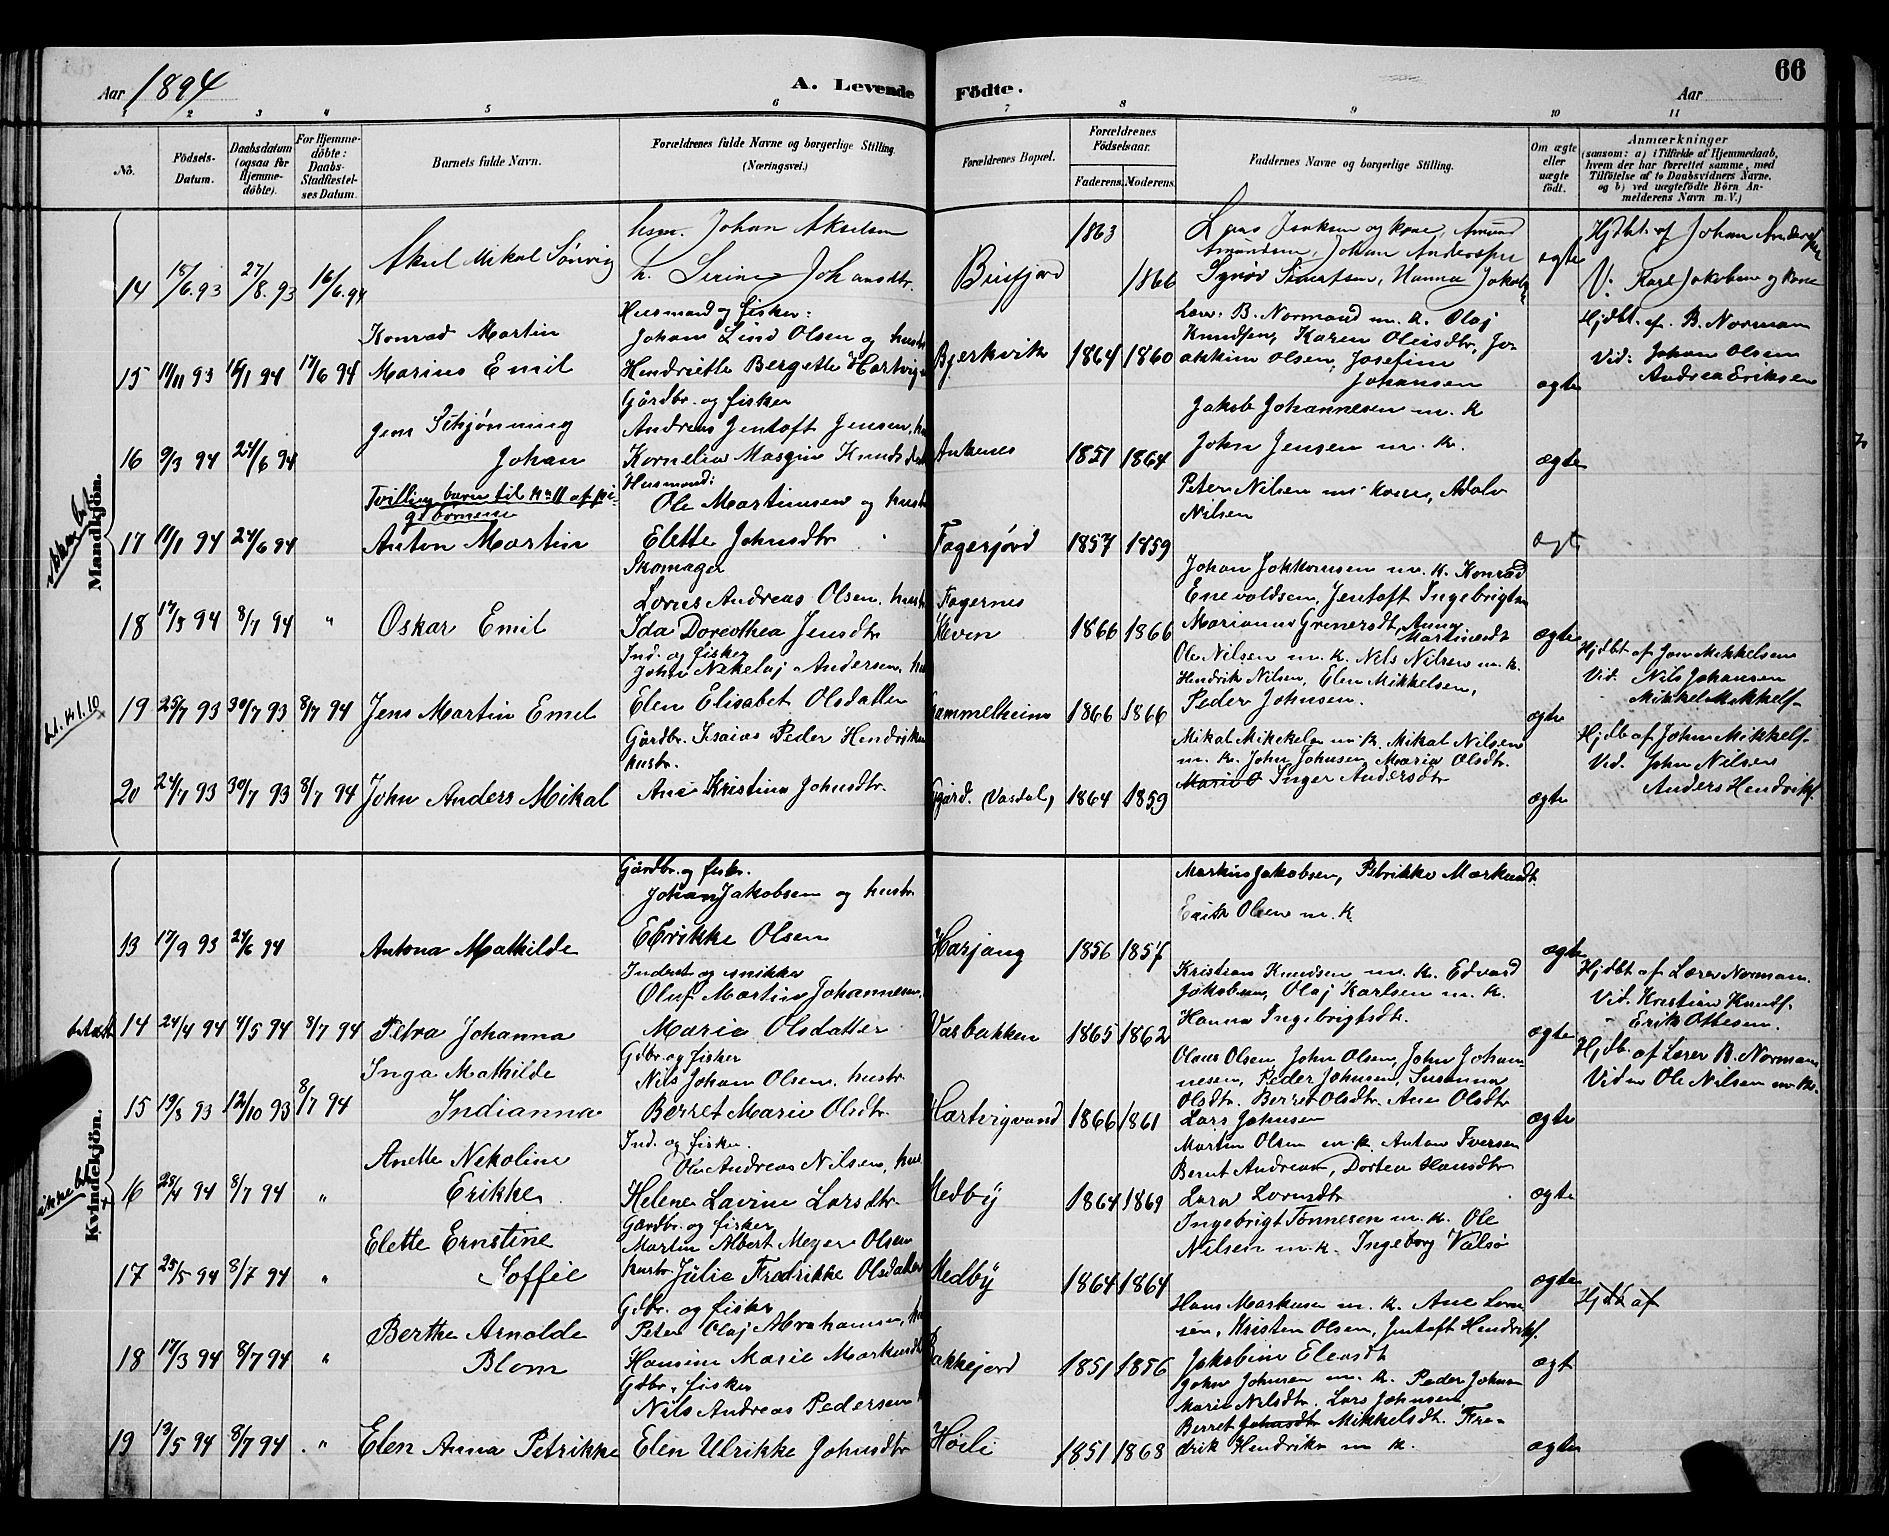 66
Aar 1894
A. Levende Födte.
Aar
1 2 3 4 5 6 7 8 9 10 11
No.
Födsels-Datum.
Daabsdatum (ogsaa for Hjemme-döbte).
For Hjemme-döbte: Daabs-Stadfæstel-ses Datum.
Barnets fulde Navn.
Forældrenes fulde Navne og borgerlige Stilling. (Næringsvei.)
Forældrenes Bopæl.
Forældrenes Födselsaar.
Faderens. Moderens.
Faddernes Navne og borgerlige Stilling.
Om ægte eller uægte födt.
Anmærkninger
(saasom: a) i Tilfælde af Hjemmedaab, hvem der har forrettet samme, med Tilföielse af to Daabsvidners Navne, og b) ved uægtefödte Börn An-melderens Navn m. V.)
Mandkjön.
14 15/6 93 27/8 93 16/6 94
Aksel Mikal Sönvig
hsm. Johan Akselsen
h. Serine Johansdtr.
Bisfjord
1863 1866
Lars Jenksen og kone, Amund
Amundsen, Johan Andersen
Hanna Jakobs
ægte
Hjdbt. af Johan Andersen
V: Karl Jakobsen og Kone
15 11/11 93 15/1 94 17/6 94
Konrad Martin
Marius Emil
Husmand og fisker:
Johan Lind Olsen og hustr
Hendriette Bergette Hartvig
Bjerkvik
1864 1860
Lærer B. Normand m. k. Olaj
Knudsen, Karen Oleisdtr, Jo-
akkim Olsen, Josefine
Johansen
ægte
Hjdbt. af B. Norman
Vid: Johan Olsen
Andrea Eriksen
16 9/3 94 24/6 94
Jens Schjønning
Johan
Gårdbr. og fisker
Andreas Jentoft Jensen, hu
Kornelia Masgine Knudsdatt
Ankenes
1851 1864
Jakob Johannesen m. k
John Jensen m. k.
ægte
17 11/1 94 24/6 94
Tvillingbarn til No 11 af pi-
gebörnene
Anton Martin
Husmand:
Ole Martinusen og hustr
Elette Johnsdtr
Fagerjord
1857 1859
Peter Nilsen m. kone, Adolv
Nilsen
ægte
18 17/5 94 8/7 94 "
Oskar Emil
Skomager
Lorns Andreas Olsen, hustr
Ida Dorothea Jensdtr
Fagernes
Kleven
1866 1866
Johan Johkomsen m. k. Konrad
Enevoldsen, Jentoft Ingebrigtsen
Marianne Grenersdtr, Anna
Martinesdtr
ægte
19 25/7 93 30/7 93 8/7 94
Jens Martin Emil
Ind. og fisker
John Nekolaj Andersen, hu
Elen Elisabet Olsdatter
Gammelheim
1866 1866
Ole Nilsen m. k. Nils Nilsen m. k.
Hendrik Nilsen, Elen Mikkelsen,
Peder Johnsen.
ægte
Hjdbt af Jon Mikkelsen
Vid. Nils Johansen
Mikkel Mikkels.
20 24/7 93 30/7 93 8/7 94
John Anders Mikal
Gårdbr. Isaias Peder Hendriksen
hustr.
Ane Kristina Johnsdtr.
Gjård. (Vasdal,)
1864 1859
Mikal Mikkelsen m. k. Mikal Nilsen
m. k. John Johnsen, Maria Olsdtr.
Marie O Inger Andersdtr
ægte
Hjdb af John Mikkels-
Vid. John Nilsen
Anders Hendriks.
Kvindekjön.
13 17/9 93 24/6 94
Antona Mathilde
Gårdbr. og fisker.
Johan Jakobsen og hustr
Erikke Olsen
Harjang
1856 1857
Markus Jakobsen, Petrikke Markusdt.
Erik Olsen m. k.
ægte
14 24/4 94 4/5 94 8/7 94
Petra Johanna
Inderst og snikker
Oluf Martin Johannesen.
Marie Olsdatter
Vasbakken
1865 1862
Kristian Knudsen m. k. Edvard
Jakobsen, Olaj Karlsen m. k.
Hanna Ingebrigtsdtr.
ægte
Hjdbt af Lærer Norman.
Vid. Kristian Knuds.
Erik Ottesen.
15 19/8 93 12/10 93 8/7 94
Inga Mathilde
Indianna
Gdbr. og fisker
Nils Johan Olsen. hustr
Berret Marie Olsdtr.
Hartvigvand
1866 1861
Olaus Olsen, John Olsen, John Johan-
nesen, Peder Johnsen, Susanna
Olsdtr. Berret Olsdtr. Ane Olsdtr
Lars Johnsen
ægte
Hjdb. af Lærer B. Norman
Vidne Ole Nilsen m. k.
16 28/4 94 8/7 94 "
Anette Nikoline
Erikke
Ind. og fisker.
Ole Andreas Nilsen, hus
Helene Lavine Larsdtr.
Medby
1864 1869
Martin Olsen m. k. Anton Iversen
Bernt Andreas, Dortea Hansdtr
Lorensdtr
ægte
17 25/5 94 8/7 94 "
Elette Ernstine
Soffie
Gårdbr. og fisker
Martin Albert Meyer Olsen
hustr. Julie Fredrikke Olsdatter
Medby
1864 1864
Ingebrigt Tönnesen m. k. Ole
Nilsen m. k. Ingeborg Valsö
ægte
Hjdb af
18 17/3 94 8/7 94 "
Berthe Arnolde
Blom
Gdbr. og fisker
Peter Olaj Abrahamsen, hu
Hansine Marie Markusdt
Bakkejord
1851 1856
Hans Markusen m. k. Ane Loren-
sen, Kristen Olsen, Jentoft Hendriks.
Jakobine Eleasdt
ægt
19 13/5 94 8/7 94 "
Elen Anna Petrikke
Gdbr. fisker
Nils Andreas Pedersen
Elen Ulrikke Johnsdtr
Höili
1851 1863
John Johnsen m. k. Peder Johnsen
Marie Nilsdtr. Lars Johnsen,
Berret Johnsdtr Mikkelsdt. Fre-
drik Hendriks m k.
ægte